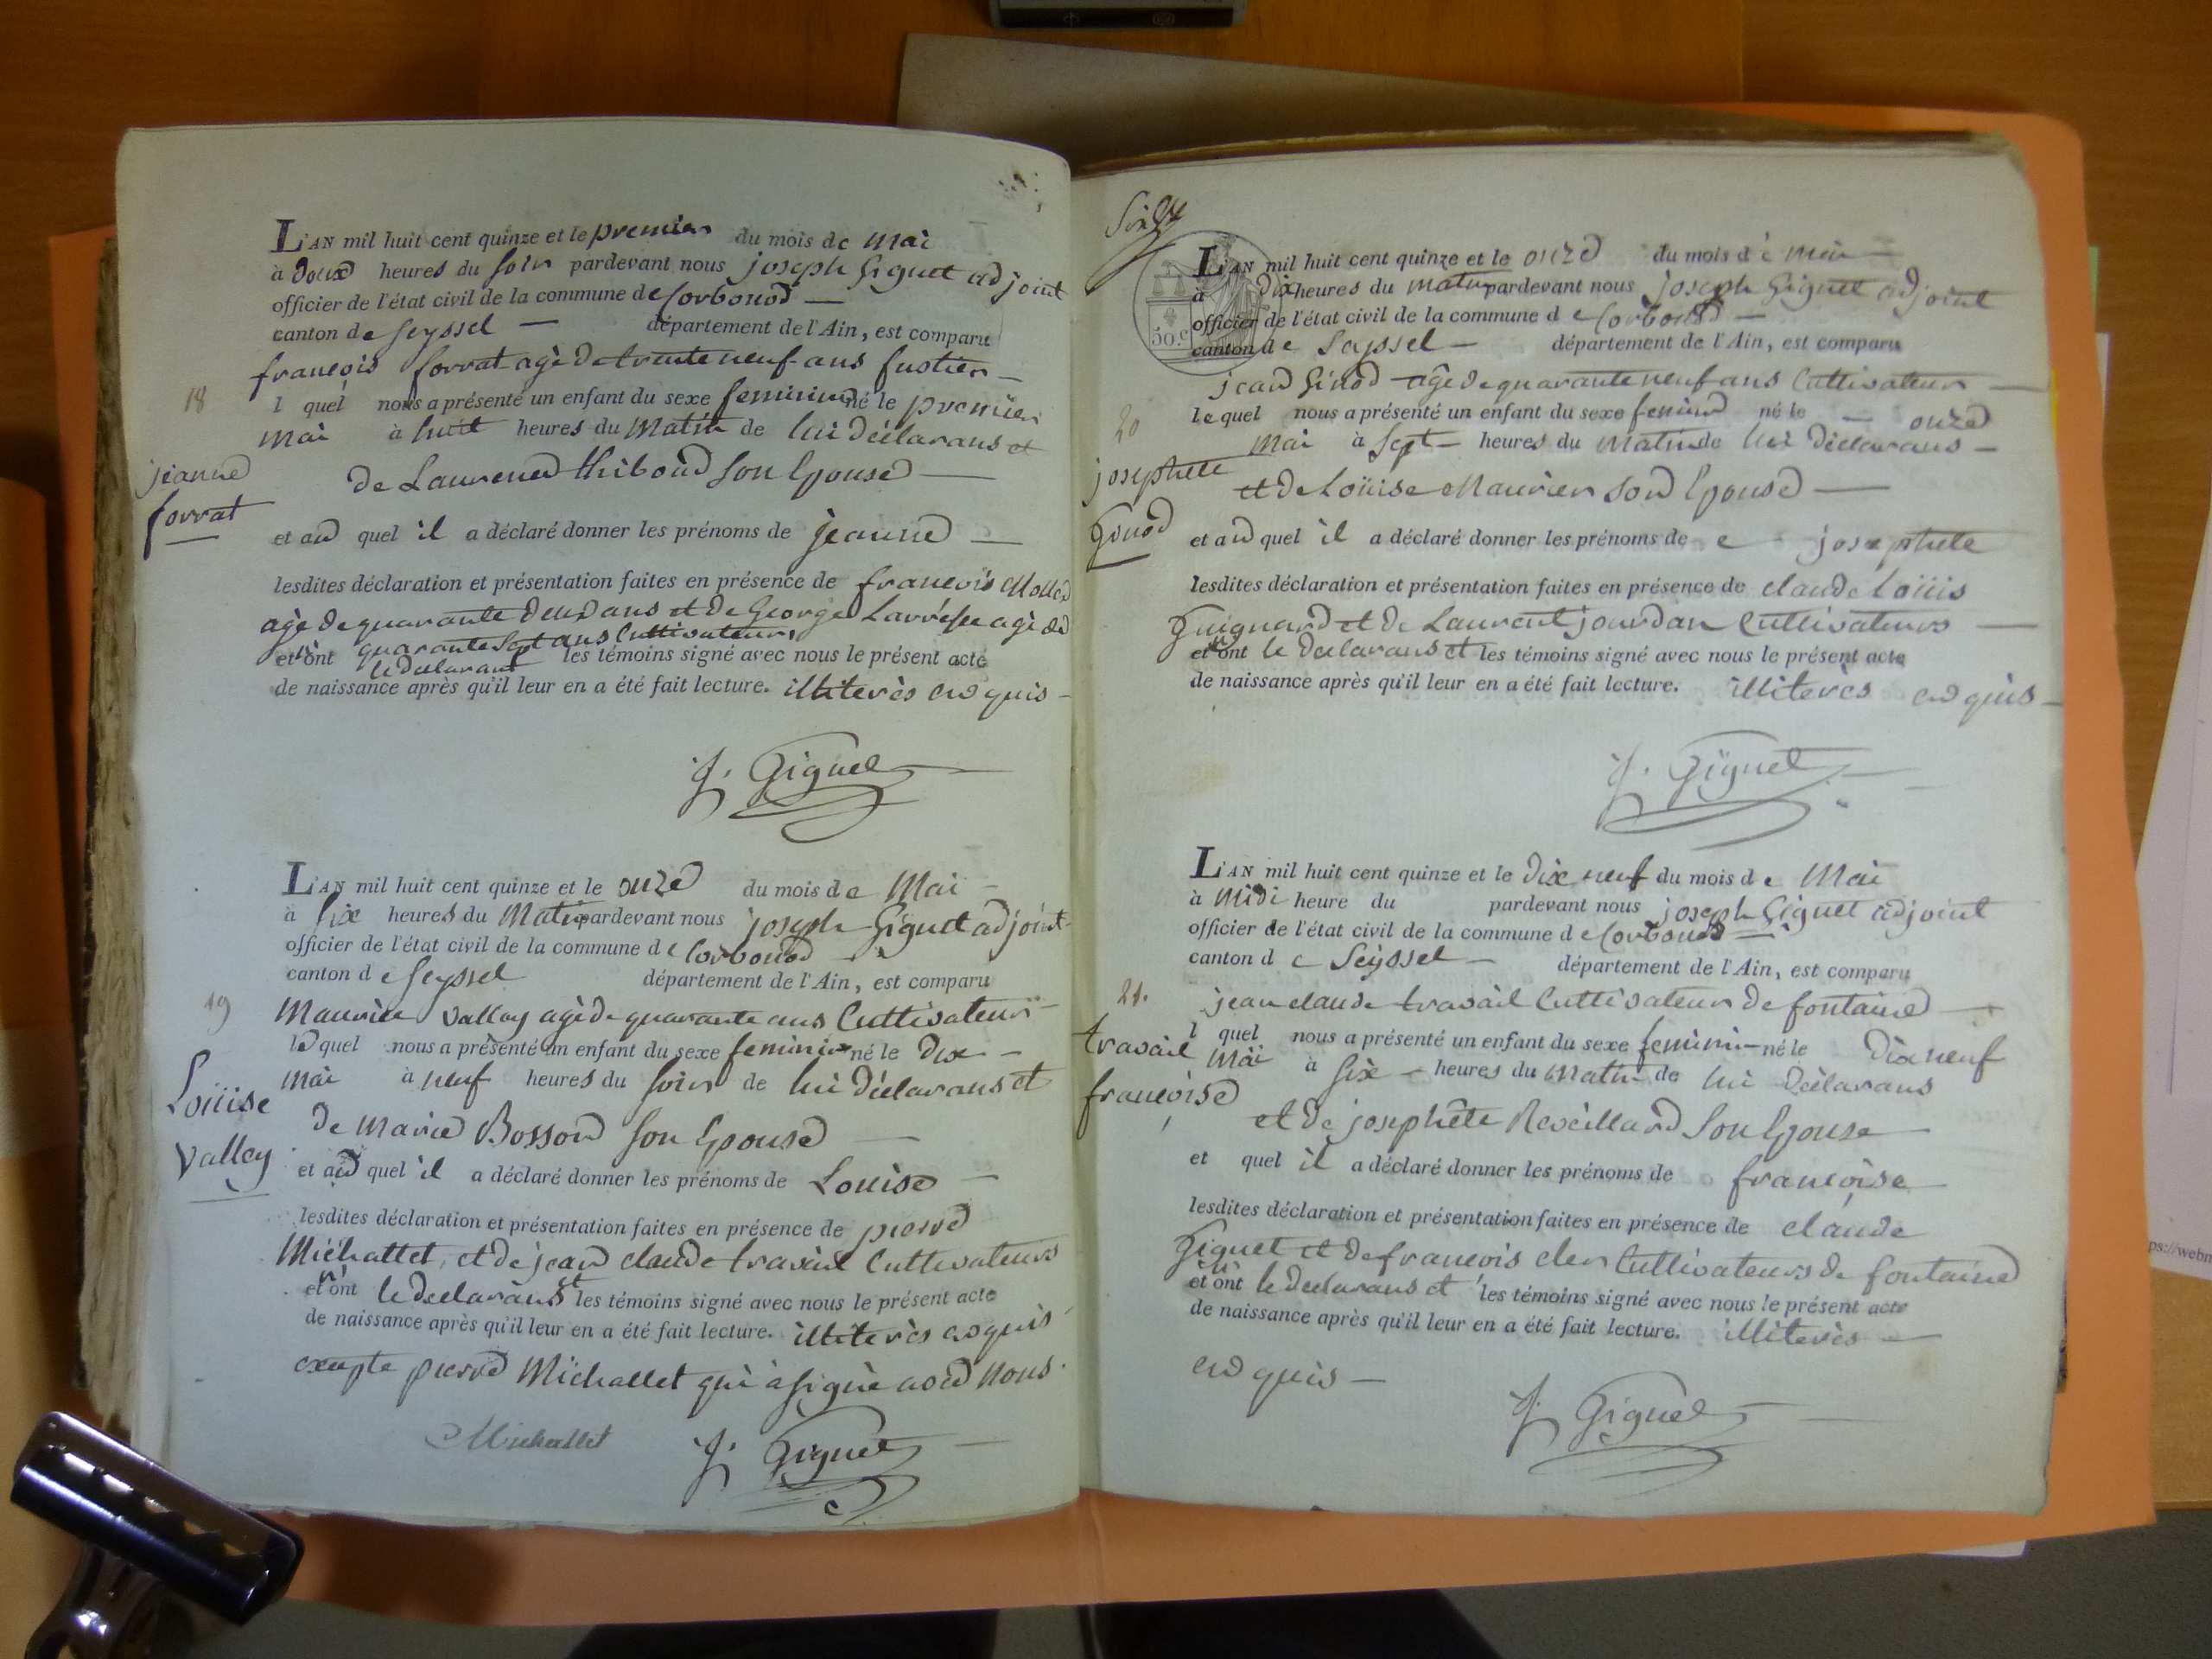 L'AN mil huit cent quinze et le premier du mois de mai
à deux heures du soir pardevant nous joseph Giguet adjoint
officier de l'état civil de la commune de Corbonod —
canton de Seyssel — département de l'Ain, est comparu
francois forrat agè de trente neuf ans fustier —
18
l quel nous a présenté un enfant du sexe feminin né le premier
mai à huit heures du matin de lui déclarans et
jeanne
forrat
de Laurence thiboud son Epouse —
et au quel il a déclaré donner les prénoms de jeanne —
lesdites déclaration et présentation faites en présence de francois
agè de quarante deux ans et de George agè de
quarante sept ans Cultivateurs
et n'ont le declarant les témoins signé avec nous le présent acte
de naissance après qu'il leur en a été fait lecture. illiterès enquis —
J. Giguet
L'AN mil huit cent quinze et le onze du mois de Mai —
à six heures du Matin pardevant nous joseph Giguet adjoint
officier de l'état civil de la commune de Corbonod —
canton de Seyssel département de l'Ain, est comparu
19
Maurice Valley agè de quarante ans Cultivateur —
le quel nous a présenté un enfant du sexe feminin né le dix —
mai à neuf heures du soir de lui déclarans et
Loüise
Valley
de marie Bosson son Epouse —
et au quel il a déclaré donner les prénoms de Louise —
lesdites déclaration et présentation faites en présence de pierre
Michallet, et de jean claude travail Cultivateurs
et n'ont le declarans et les témoins signé avec nous le présent acte
de naissance après qu'il leur en a été fait lecture. illiterès enquis
exepte pierre Michallet qui à signè avec nous.
Michallet J. Giguet
50 c
L'AN mil huit cent quinze et le onze du mois de mai —
à dix heures du matin pardevant nous joseph Giguet adjoint
officier de l'état civil de la commune de Corbonod —
canton de Seyssel — département de l'Ain, est comparu
jean Ginod agè de quarante neuf ans Cultivateur —
20
le quel nous a présenté un enfant du sexe feminin né le — onze
mai à sept — heures du matin de lui déclarans —
josephete
Ginod
et de Loüise Maurier son Epouse —
et au quel il a déclaré donner les prénoms de e josephete
lesdites déclaration et présentation faites en présence de claude Loüis
Guignard et de Laurent jourdan Cultivateurs —
et n'ont le declarans et les témoins signé avec nous le présent acte
de naissance après qu'il leur en a été fait lecture. illiterès enquis —
J. Giguet
L'AN mil huit cent quinze et le dix neuf du mois de Mai
à Midi heure du pardevant nous joseph Giguet adjoint
officier de l'état civil de la commune de Corbonod —
canton de Seyssel — département de l'Ain, est comparu
21.
jean claude travail Cultivateur de fontaine —
l quel nous a présenté un enfant du sexe feminin — né le dix neuf
travail
françoise
mai à six — heures du matin de lui déclarans
et de josephête Reveillard son Epouse —
et quel il a déclaré donner les prénoms de françoise
lesdites déclaration et présentation faites en présence de claude
Giguet et de francois Cultivateurs de fontaine
et n'ont le declarans et les témoins signé avec nous le présent acte
de naissance après qu'il leur en a été fait lecture. illiterès —
enquis —
J. Giguet